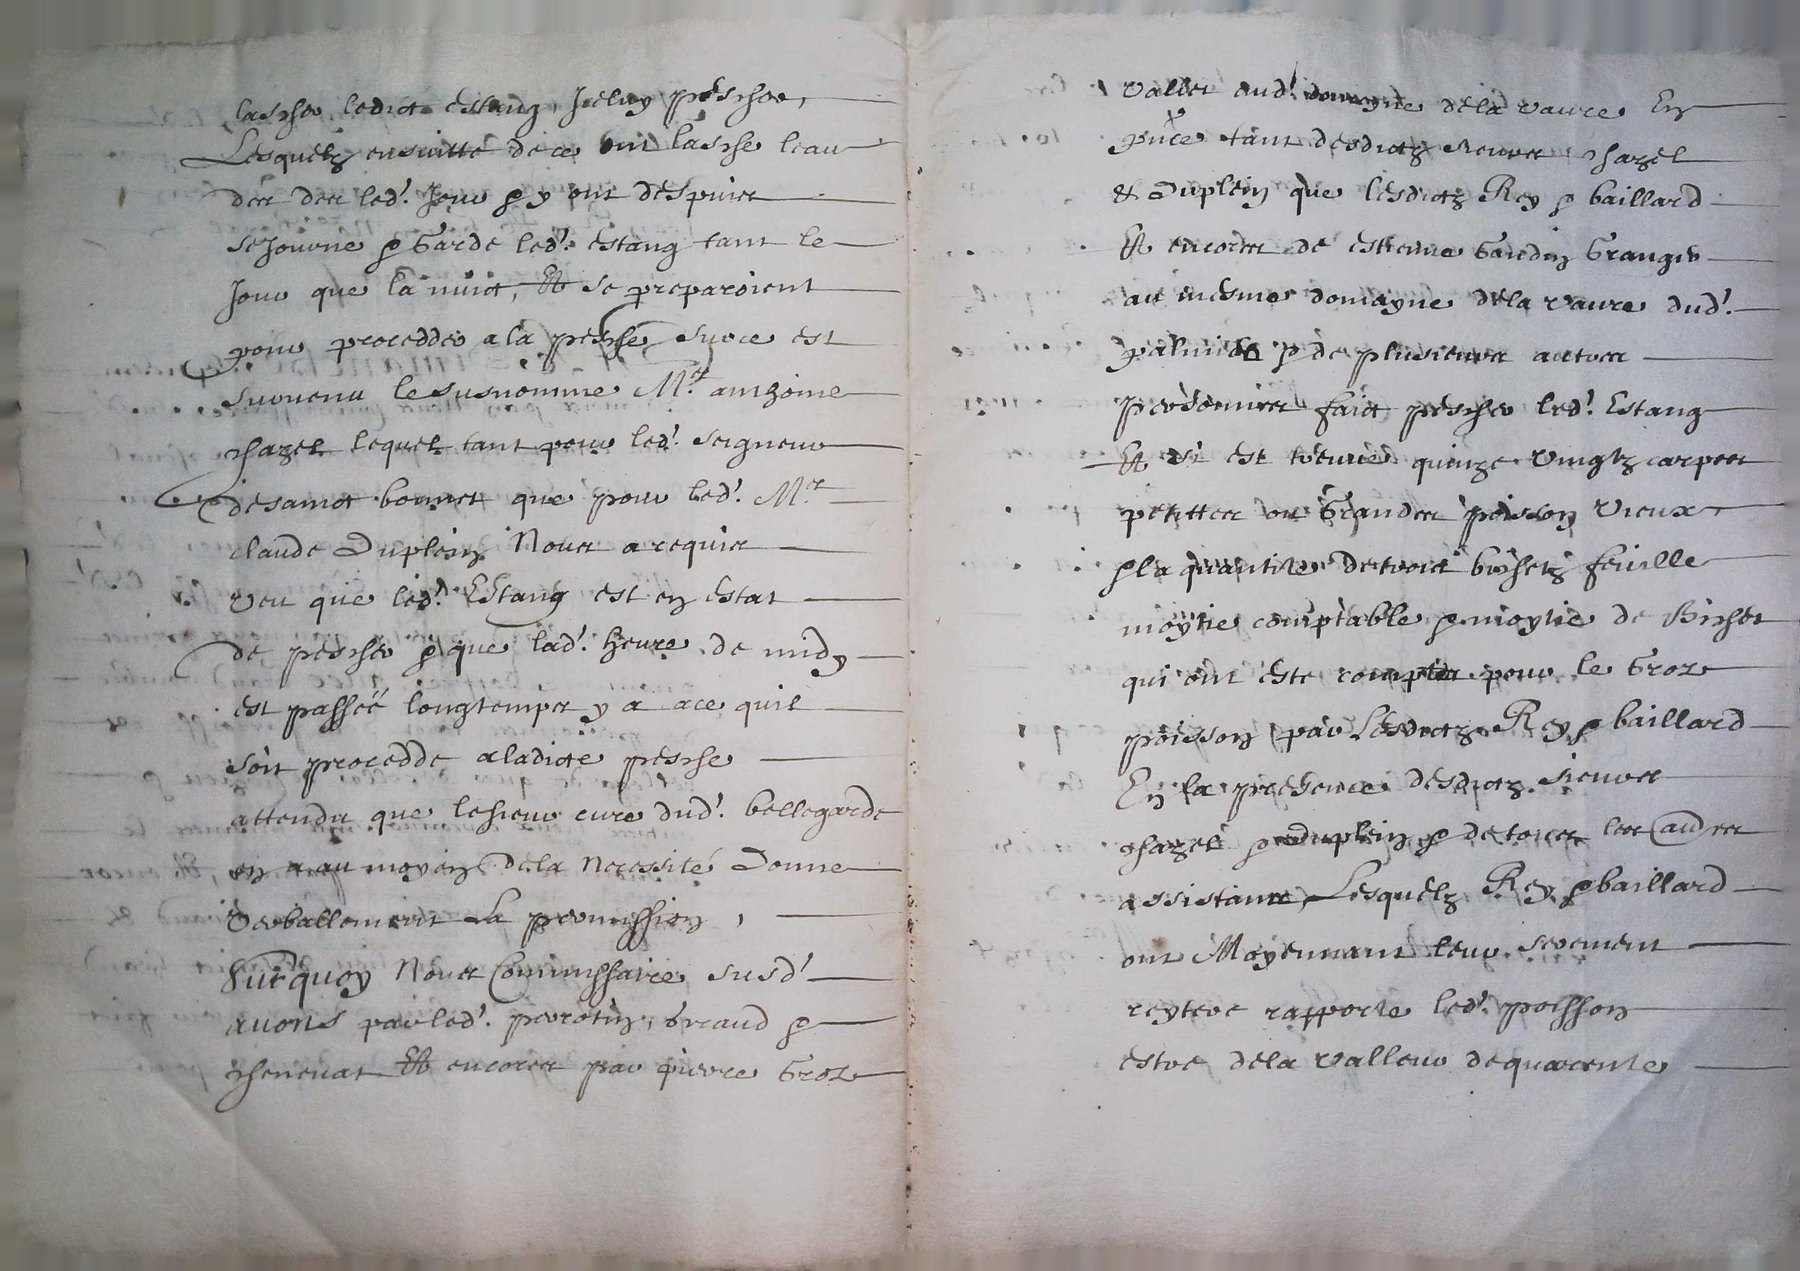 lascher ledict estang, Jcluy pescher,
Lesquelz ensuitte de ce ont lasche leau
des des led.t Jour & y ont despuis
sejourne & garde led.t estang tant le
Jour que la nuict, Et se preparoient
pour procedder a la pesche, surce est
survenu le susnomme M.re anthoine
chazel lequel tant pour led.t seigneur
desainct bonnet que pour led.t M.re
claude Duplein Nous a requis
veu que led.t Estang est en estat
de pescher & que lad.t heure de midy
est passée longtemps y a ace quil
soit procedde aladicte pesche
attendu que lesieur cure dud.t bellegarde
en a au moyen dela Necessité Donne
verballement La permission,
Surquoy Nous Commissaire susd.t
avons par led.t perrotin, Giraud &
chenevat Et encores par pierre Groz
vallet aud.t domayne dela vaure En
pnce tant desdictz sieurs chazel
& Duplein que lesdictz Rey & baillard
Et encores de estienne Gardin Granger
au mesme domayne dela vaure dud.t
& de plusieurs autres
personnes faict pescher led.t Estang
Et si est treuve quinze vingtz carpes
petittes ou Grandes poisson vieux
& la quantite detrois bichetz feuille
moytie comptable & moytie de Bichet
qui ont este comptes pour le Groz
poisson par Lesdictz Rey & baillard
En la presence desdictz sieurs
chazel & Duplein & de tous les aud.es
assistans, Lesquelz Rey & baillard
ont Moyennant leur serement
reytere rapporte led.t poisson
estre dela valleur dequarente